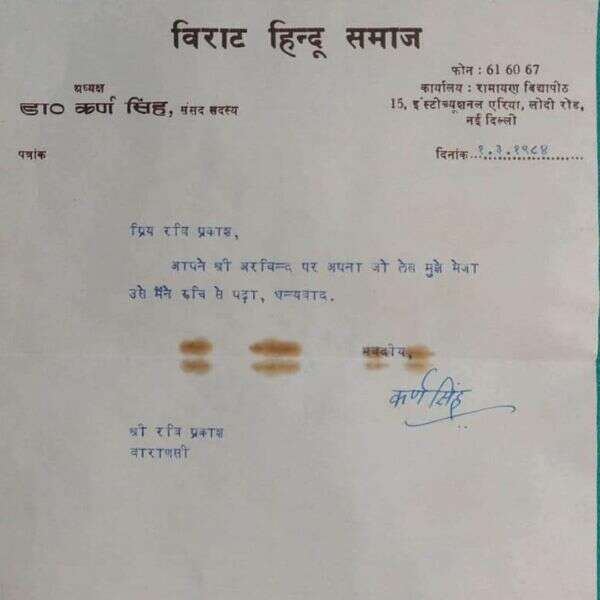 विराट हिन्दू समाज
अध्यक्ष
डा० कर्ण सिंह, संसद सदस्य
फोन : 61 60 67
कार्यालय : रामायण विद्यापीठ
15, इंस्टीच्यूशनल एरिया, लोदी रोड,
नई दिल्ली
पत्रांक
दिनांक १.३.१९८४
प्रिय रवि प्रकाश,
आपने श्री अरविन्द पर अपना जो लेख मुझे भेजा
उसे मैंने रुचि से पढ़ा, धन्यवाद.
भवदीय,
कर्ण सिंह
श्री रवि प्रकाश
वाराणसी